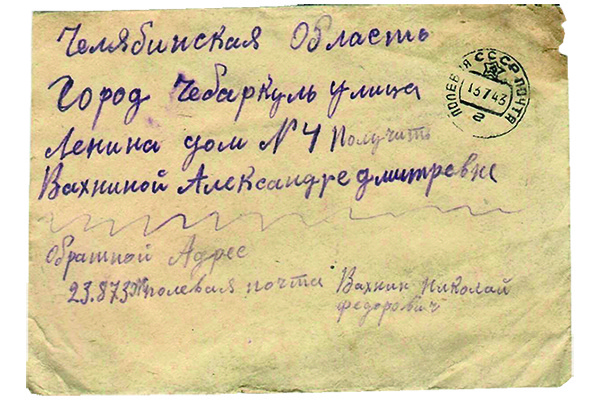 Челябинская Область
Город Чебаркуль улица
Ленина дом N 4 Получить
Вахниной Александре дмитревне
Обратной Адрес
23.873 полевая почта Вахнин Николай
федорович
ПОЛЕВАЯ ПОЧТА СССР
13 7 43
г